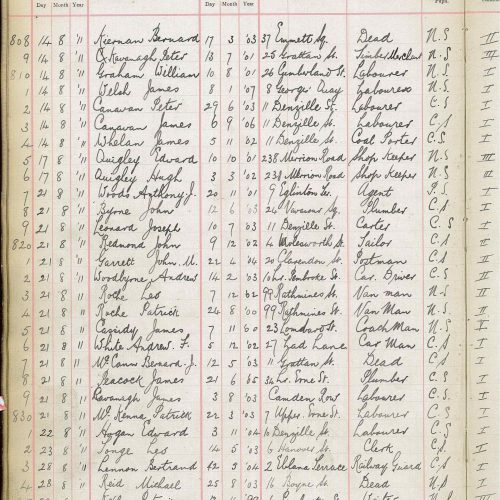 Day Month Year Day Month Year
808 14 8 '11 Kiernan Bernard 17 3 '03 37 Emmett Sq. Dead N.S II
9 14 8 '11 O'Kavanagh Peter 13 7 '01 25 Grattan St. Timber Merchant N.S III
810 14 8 '11 Graham William 10 8 '01 26 Cumberland St. Labourer N.S I
1 14 8 '11 Welsh James 8 1 '07 8 George's Quay Labourers N.S I
2 14 8 '11 Canavan Peter 29 6 '03 11 Denzille St. Labourer C.S I
3 14 8 '11 Canavan James 6 9 '06 11 Denzille St. Labourer C.S I
4 14 8 '11 Whelan James 5 11 '02 11 Denzille St. Coal Porter C.S I
5 17 8 '11 Quigley Edward 10 10 '01 238 Merrion Road Shop Keeper N.S III
6 17 8 '11 Quigley Hugh 3 3 '02 238 Merrion Road Shop Keeper N.S II
7 21 8 '11 Woods Anthony J. 20 11 '01 9 Eglinton Ter. Agent P.S I
8 21 8 '11 Byrne John 12 6 '03 Plumber C.S I
9 21 8 '11 Leonard Joseph 10 7 '03 11 Denzille St. Carter C.S I
820 21 8 '11 Redmond John 9 12 '02 4 Molesworth St. Tailor C.S I
1 21 8 '11 Garrett John M. 22 4 '04 20 Clarendon St. Postman C.S I
2 21 8 '11 Woodbyrne Andrew 14 2 '03 Pembroke St. Car Driver C.S I
3 21 8 '11 Roche Leo 7 12 '02 99 Rathmines St. Van man N.S I
4 21 8 '11 Roche Patrick 24 8 '00 99 Rathmines St. Van Man N.S I
5 21 8 '11 Cassidy James 7 11 '00 23 Lombard St. Coach Man N.S I
6 21 8 '11 White Andrew. F. 5 12 '02 27 Lad Lane Car Man C.S I
7 21 8 '11 McCann Bernard J. 12 5 '03 11 Grattan St. Dead C.S I
8 21 8 '11 Peacock James 21 6 '05 Erne St. Plumber C.S I
9 21 8 '11 Kavanagh James 3 8 '03 Camden Row Labourer C.S I
830 21 8 '11 McKenna Patrick 22 3 '03 7 Upper Erne St. Labourer C.S I
1 22 8 '11 Hogan Edward 3 11 '04 Denzille St. Labourer C.S I
2 23 8 '11 Tonge Leo 14 5 '03 6 Hanover St. Clerk C.S I
3 28 8 '11 Lennon Bertrand 2 Eblana Terrace Railway Guard C.S I
4 28 8 '11 Reid Michael 25 8 '03 16 Boyne St. Dead N.S I